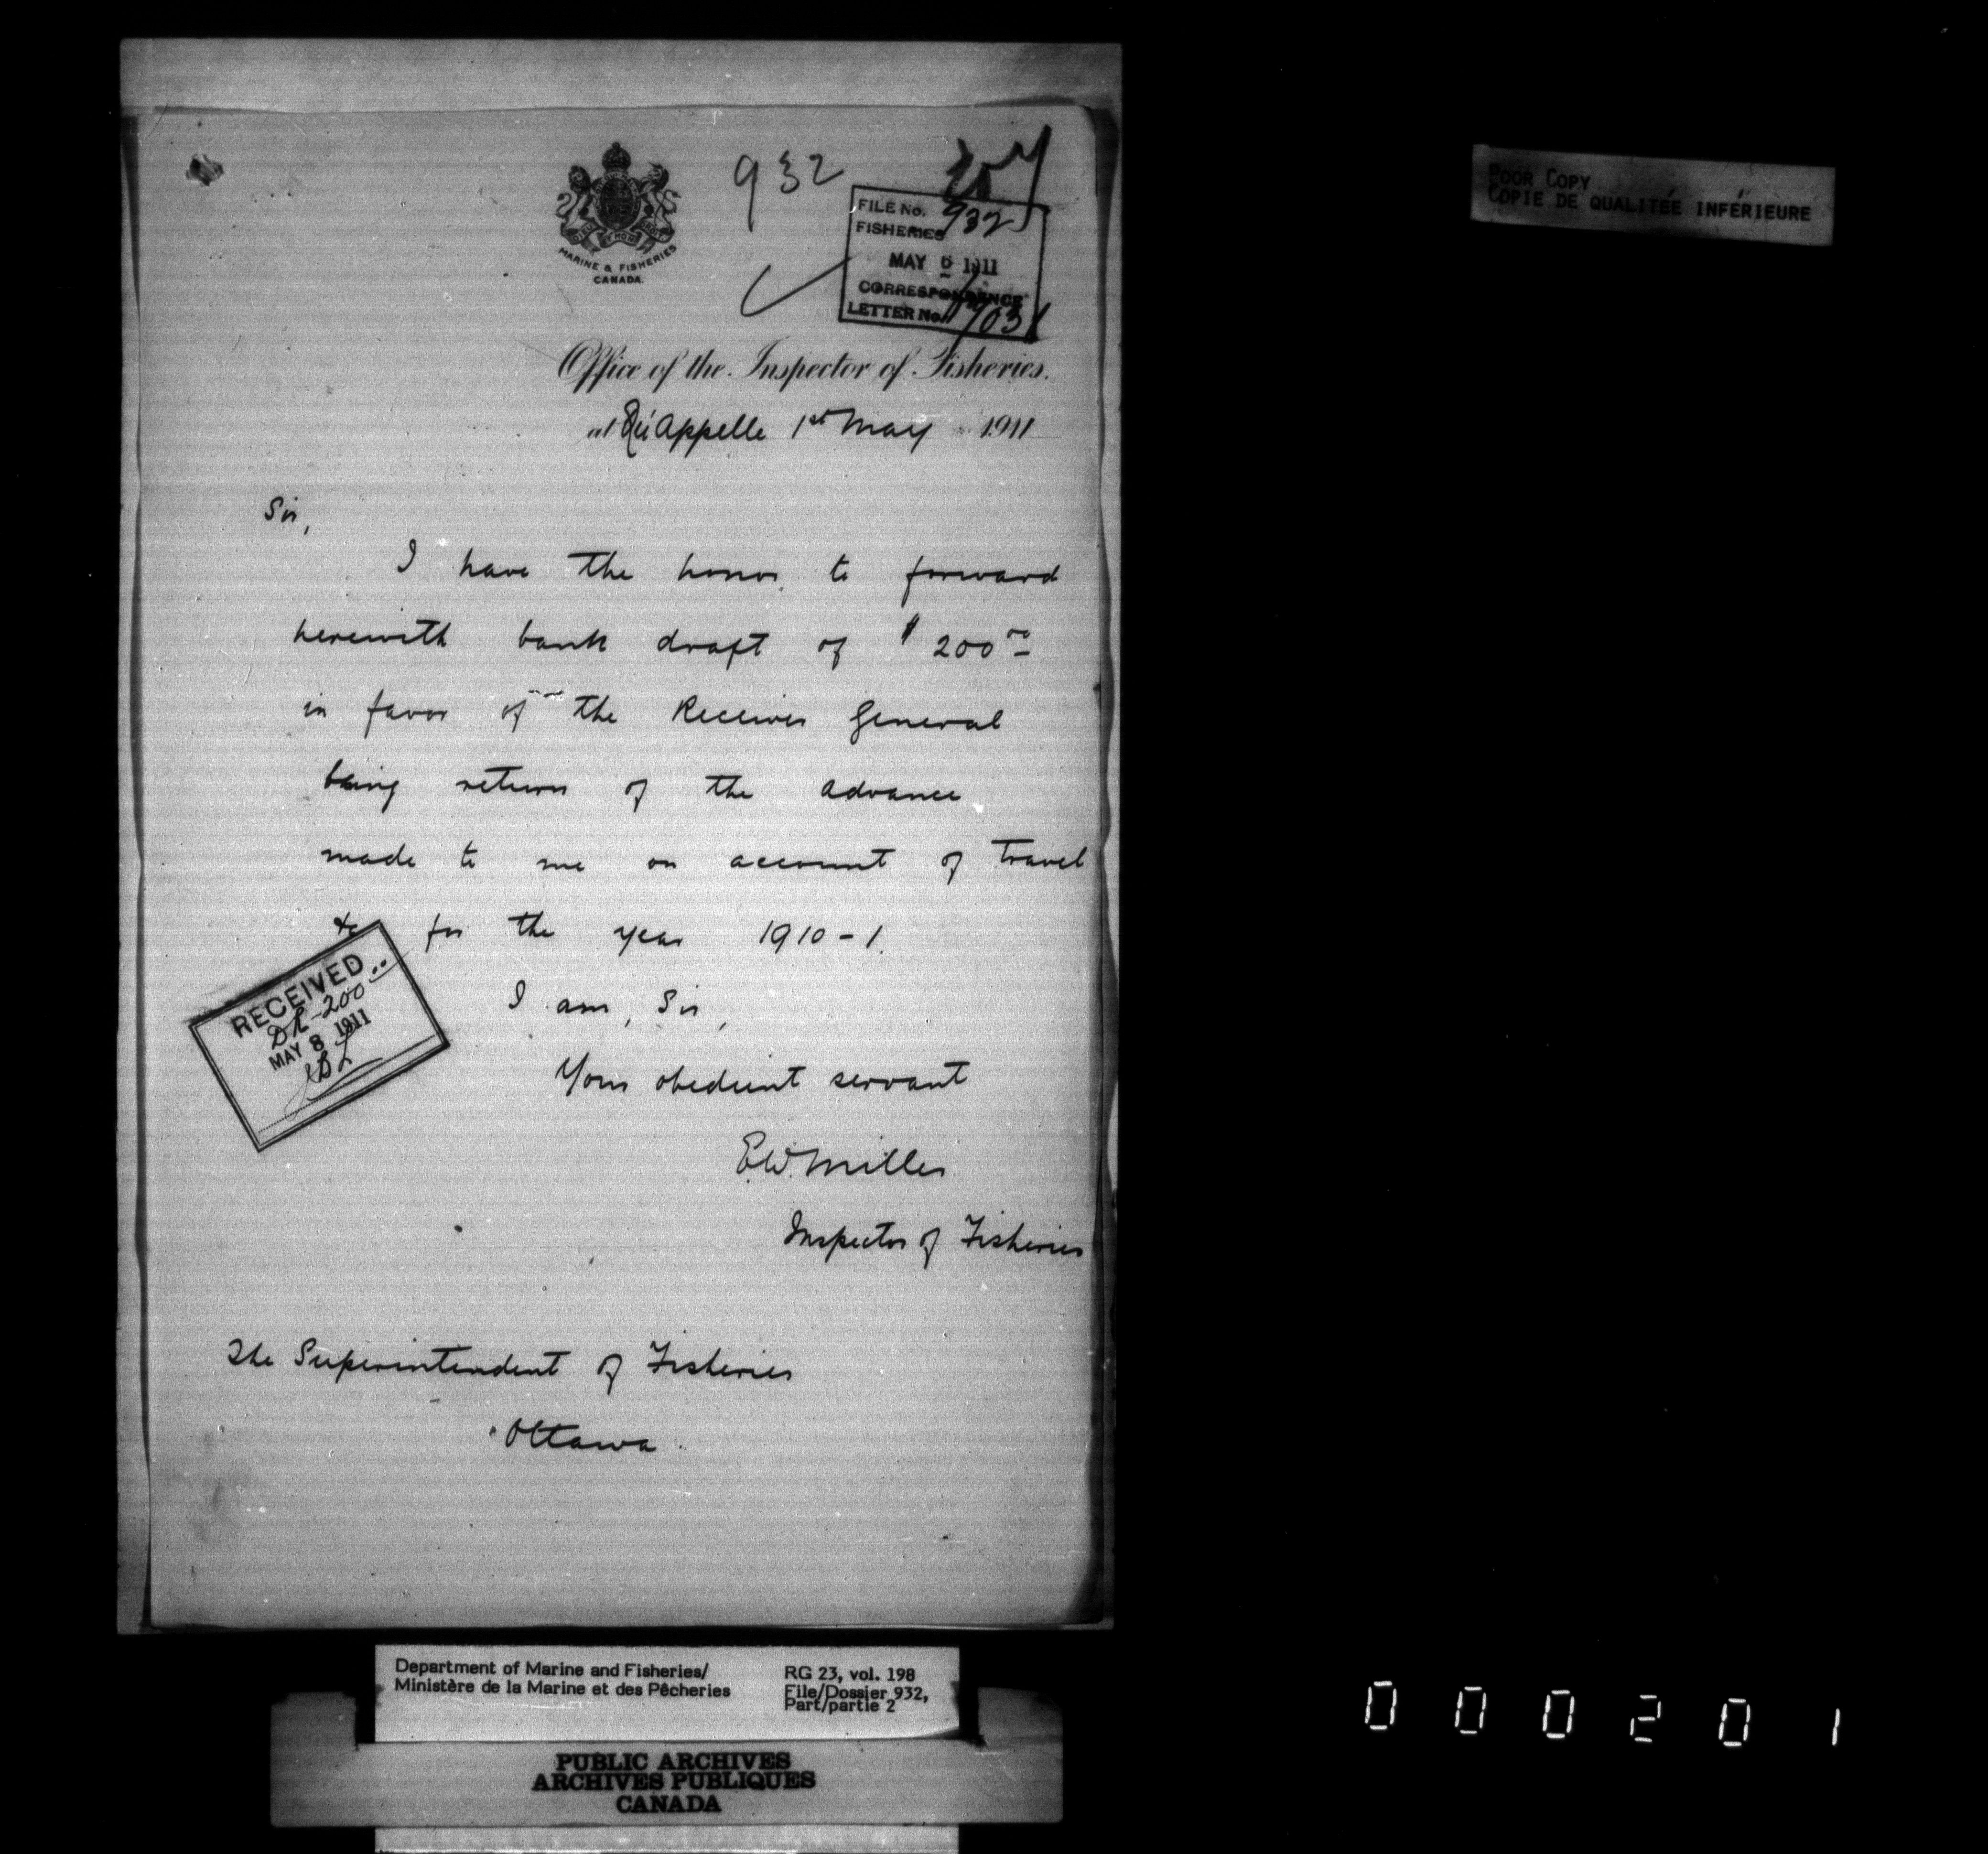 932
MARINE & FISHERIES
CANADA.
FILE No. 932
FISHERIES
MAY 6 1911
CORRESPONDENCE
LETTER No.
Office of the Inspector of Fisheries.
at Qu'Appelle 1st May 1911
Sir,
I have the honor to forward
herewith bank draft of $200 00
in favor of the Receiver General
being return of the advance
made to me on account of travel
&c for the year 1910-1.
I am, Sir,
Your obedient servant
E.W. Miller
Inspector of Fisheries
RECEIVED
Dft-200
MAY 8 1911
The Superintendent of Fisheries
Ottawa.
POOR COPY
COPIE DE QUALITÉE INFÉRIEURE
Department of Marine and Fisheries/
Ministère de la Marine et des Pêcheries
RG 23, vol. 198
File/Dossier 932,
Part/partie 2
PUBLIC ARCHIVES
ARCHIVES PUBLIQUES
CANADA
000201